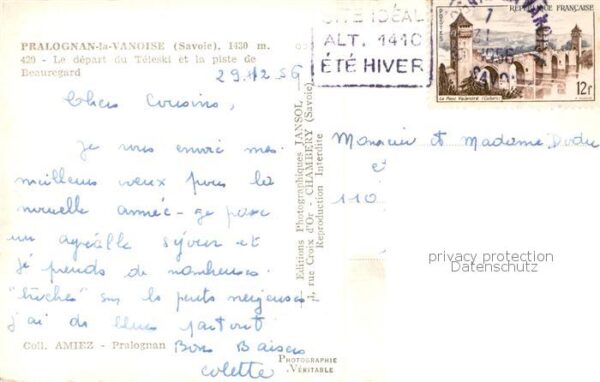 PRALOGNAN-la-VANOISE (Savoie), 1430 m.
420 - Le départ du Téleski et la piste de
Beauregard
29.12.56
Chers Cousins,
Je vous envoie mes
meilleurs vœux pour la
nouvelle année - je passe
un agréable séjour et
je prends de nombreuses
"bûches" sur les pentes neigeuses
j'ai des bleus partout
Bons Baisers
Colette
Coll. AMIEZ - Pralognan
Editions Photographiques JANSOL
1, rue Croix d'Or - CHAMBÉRY (Savoie)
Reproduction Interdite
PHOTOGRAPHIE
VÉRITABLE
CITE IDÉAL
ALT. 1410
ÉTÉ HIVER
RÉPUBLIQUE FRANÇAISE
Le Pont Valentré (Cahors)
12F
Monsieur et Madame Dodu
110
privacy protection
Datenschutz